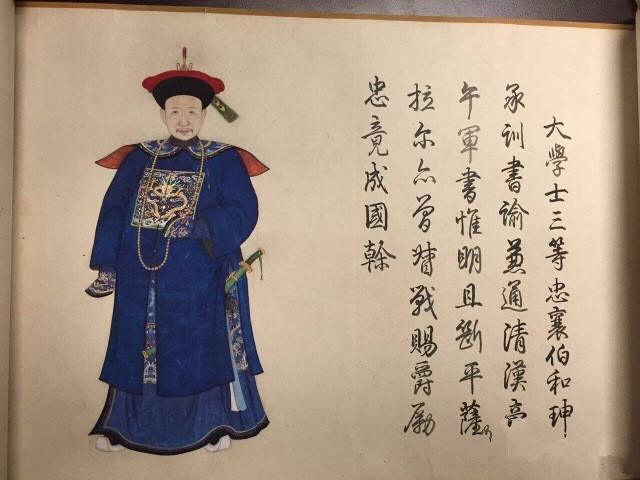 大學士三等忠襄伯和珅
承訓書諭兼通清漢亭
午軍書惟明且斷平薩
拉爾亦曾督戰賜爵勵
忠竟成國幹